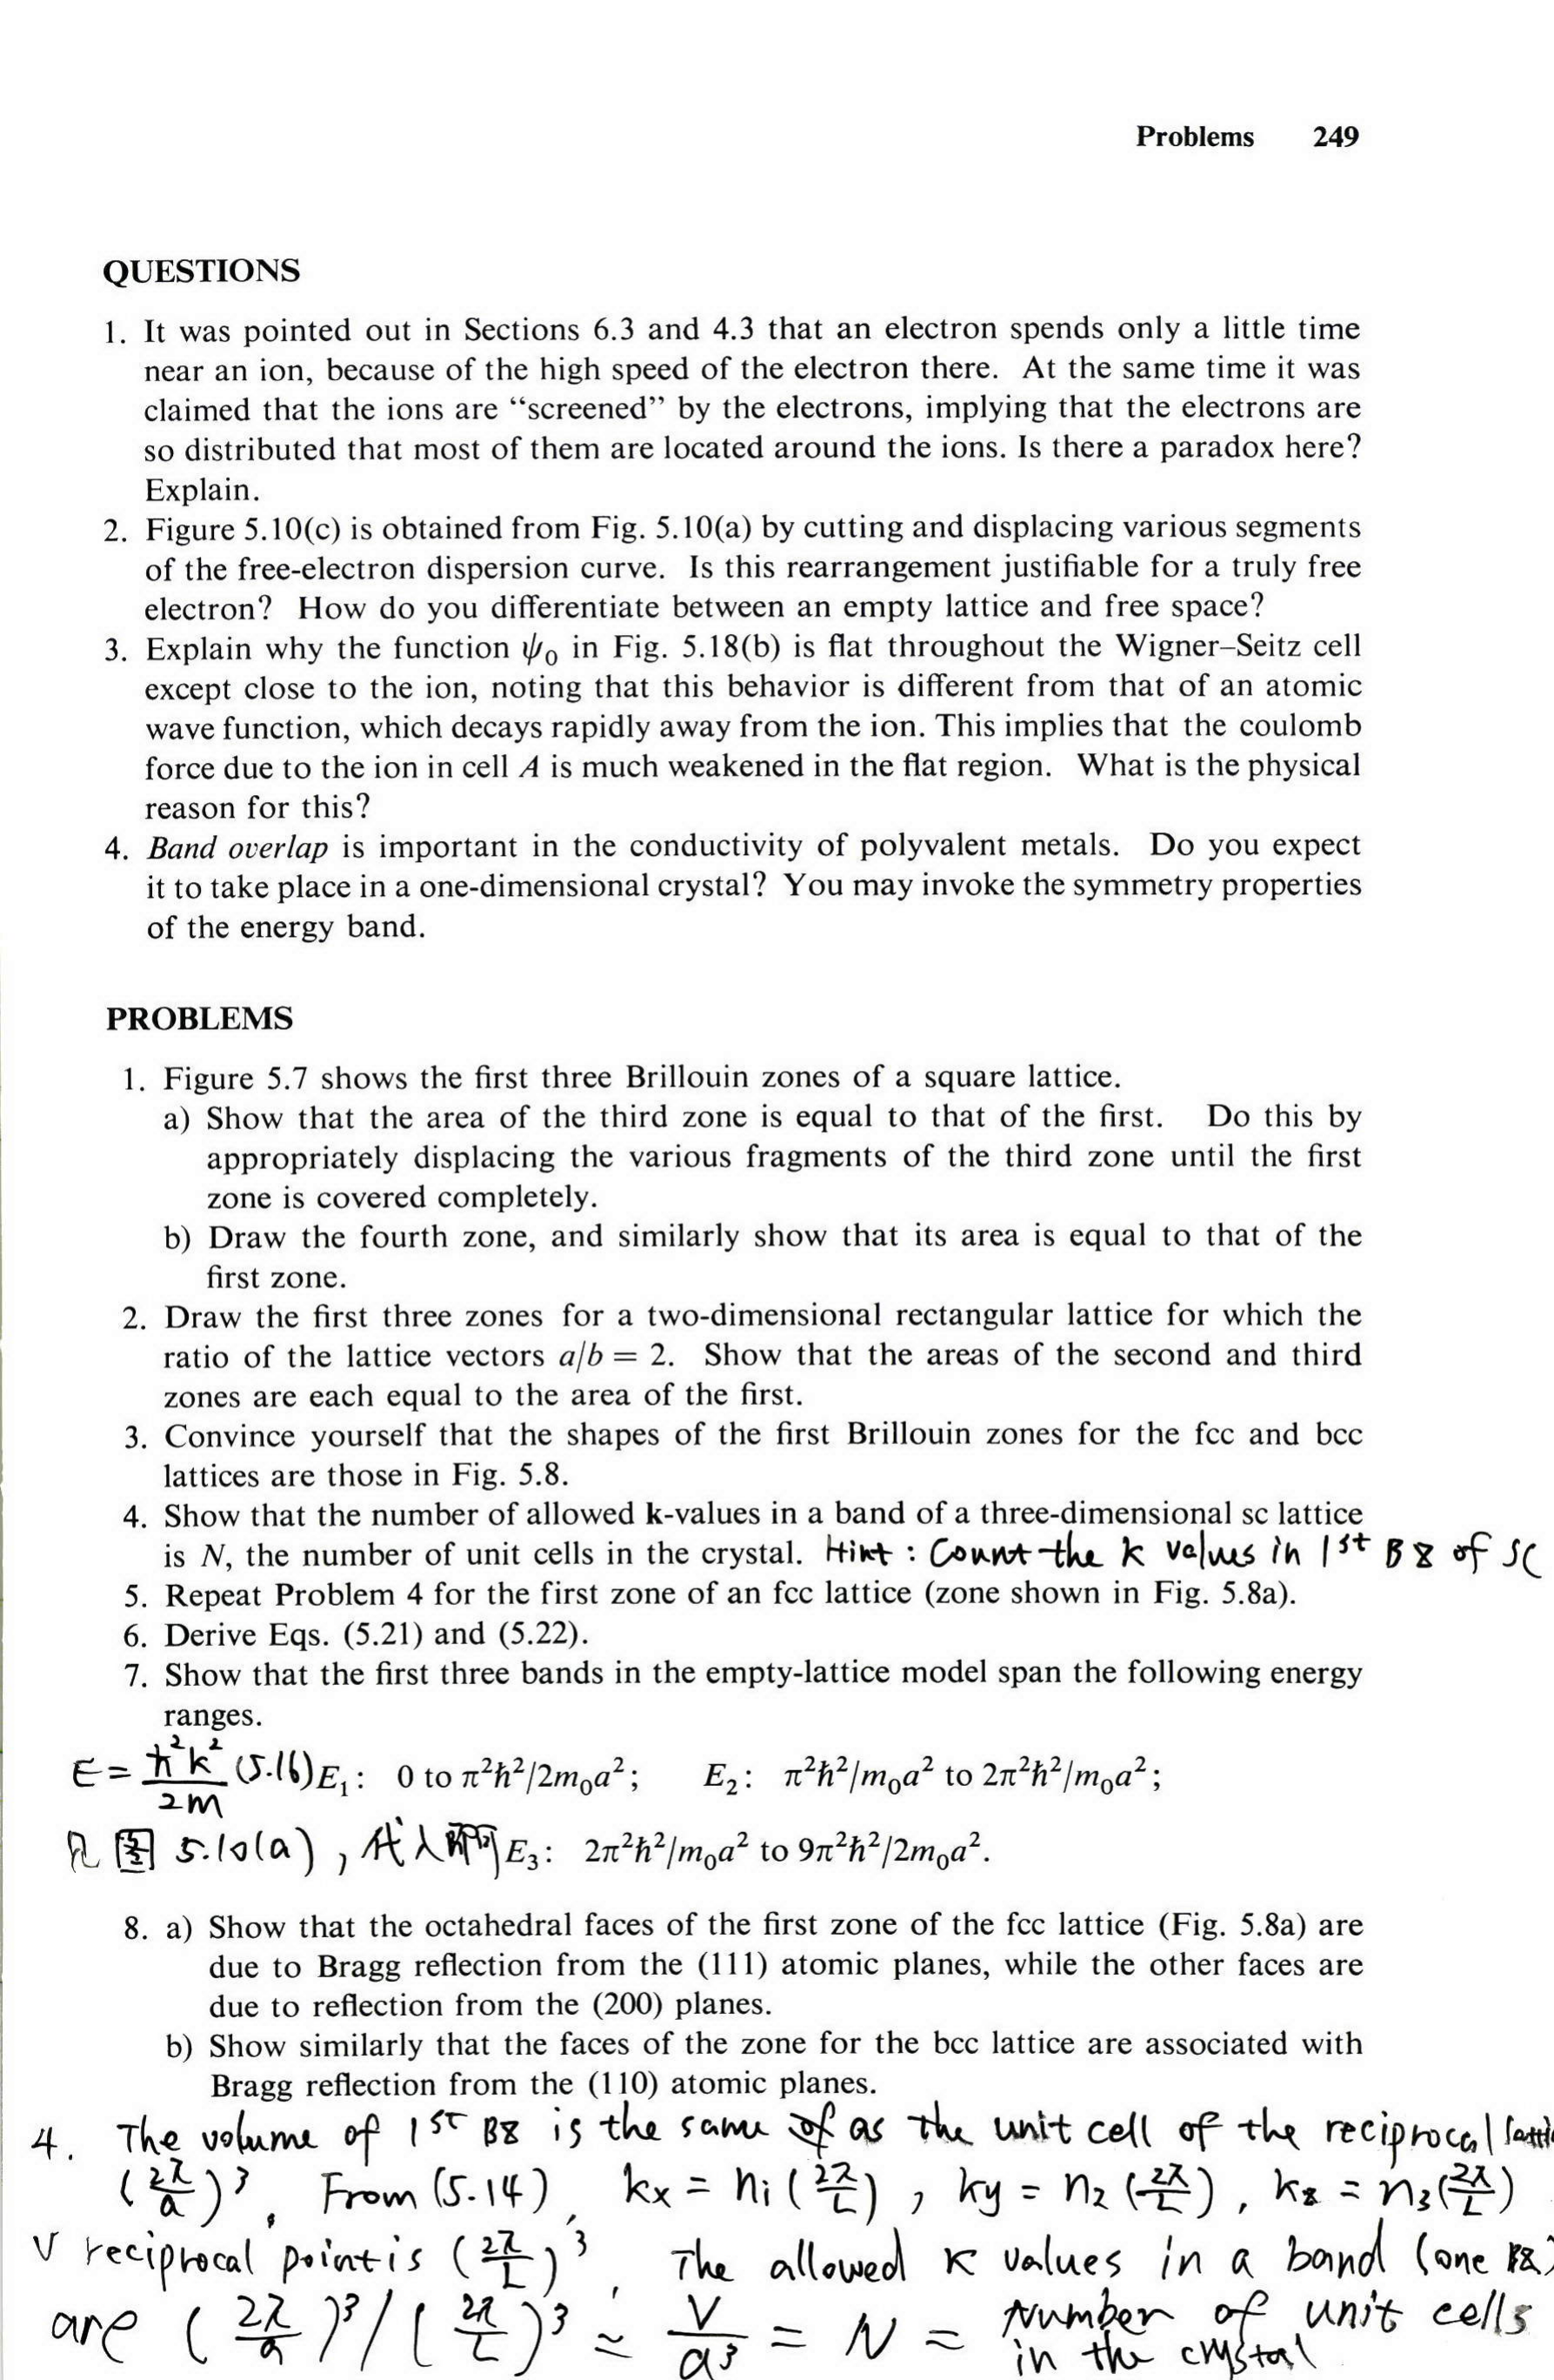 Problems 249
QUESTIONS
1. It was pointed out in Sections 6.3 and 4.3 that an electron spends only a little time
near an ion, because of the high speed of the electron there. At the same time it was
claimed that the ions are “screened” by the electrons, implying that the electrons are
so distributed that most of them are located around the ions. Is there a paradox here?
Explain.
2. Figure 5.10(c) is obtained from Fig. 5.10(a) by cutting and displacing various segments
of the free-electron dispersion curve. Is this rearrangement justifiable for a truly free
electron? How do you differentiate between an empty lattice and free space?
3. Explain why the function ψ₀ in Fig. 5.18(b) is flat throughout the Wigner–Seitz cell
except close to the ion, noting that this behavior is different from that of an atomic
wave function, which decays rapidly away from the ion. This implies that the coulomb
force due to the ion in cell A is much weakened in the flat region. What is the physical
reason for this?
4. Band overlap is important in the conductivity of polyvalent metals. Do you expect
it to take place in a one-dimensional crystal? You may invoke the symmetry properties
of the energy band.
PROBLEMS
1. Figure 5.7 shows the first three Brillouin zones of a square lattice.
a) Show that the area of the third zone is equal to that of the first. Do this by
appropriately displacing the various fragments of the third zone until the first
zone is covered completely.
b) Draw the fourth zone, and similarly show that its area is equal to that of the
first zone.
2. Draw the first three zones for a two-dimensional rectangular lattice for which the
ratio of the lattice vectors a/b = 2. Show that the areas of the second and third
zones are each equal to the area of the first.
3. Convince yourself that the shapes of the first Brillouin zones for the fcc and bcc
lattices are those in Fig. 5.8.
4. Show that the number of allowed k-values in a band of a three-dimensional sc lattice
is N, the number of unit cells in the crystal. Hint : Count the k values in 1st BZ of SC
5. Repeat Problem 4 for the first zone of an fcc lattice (zone shown in Fig. 5.8a).
6. Derive Eqs. (5.21) and (5.22).
7. Show that the first three bands in the empty-lattice model span the following energy
ranges.
E = ħ²k²/2m (5.16) E₁: 0 to π²ħ²/2m₀a²; E₂: π²ħ²/m₀a² to 2π²ħ²/m₀a²;
见图 5.10(a), 代入即可 E₃: 2π²ħ²/m₀a² to 9π²ħ²/2m₀a².
8. a) Show that the octahedral faces of the first zone of the fcc lattice (Fig. 5.8a) are
due to Bragg reflection from the (111) atomic planes, while the other faces are
due to reflection from the (200) planes.
b) Show similarly that the faces of the zone for the bcc lattice are associated with
Bragg reflection from the (110) atomic planes.
4. The volume of 1ST BZ is the same as the unit cell of the reciprocal
(2π/a)³. From (5.14), kx = n₁(2π/L), ky = n₂(2π/L), kz = n₃(2π/L)
V reciprocal point is (2π/L)³. The allowed K values in a band (one BZ)
are (2π/a)³/(2π/L)³ = V/a³ = N = Number of unit cells
in the crystal